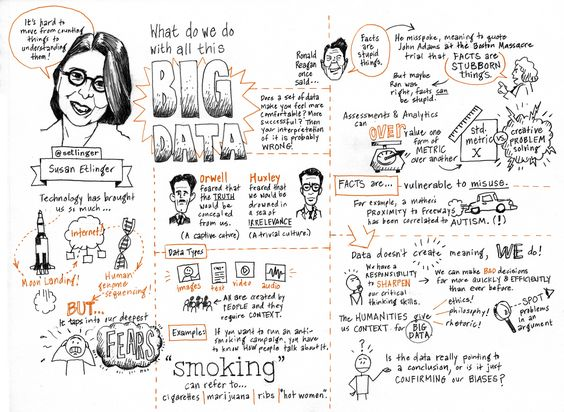 It's hard to
move from counting
things to
understanding
them!
@setlinger
Susan Etlinger
Technology has brought
us so much...
internet!
Moon Landing!
Human
genome
sequencing!
BUT...
It taps into our deepest
FEARS
What do we do
with all this
BIG
DATA
Does a set of data
make you feel more
comfortable? More
successful? Then your
interpretation
of it is probably
WRONG!
Orwell
feared that
the TRUTH
would be
concealed
from us.
(A captive cultre)
Huxley
Feared that
we would
be drowned
in a
sea of
IRRELEVANCE
(A trivial culture.)
Data Types
images
text
video
audio
All are created by
PEOPLE and they
require CONTEXT.
Example:
If you want to run an anti-
smoking campaign, you have
to know HOW people talk about it.
"smoking"
can refer to...
cigarettes | marijuana | ribs | "hot women".
Ronald
Reagan
once
said...
Facts
are
stupid
things.
He misspoke, meaning to quote
John Adams at the Boston Massacre
trial that, FACTS are
STUBBORN
things.
But maybe
Ron was
right, facts can
be stupid.
Assessments & Analytics
can
OVER value one
form of
METRIC
over another
std.
metric
X
VS
creative
PROBLEM
solving
FACTS are... vulnerable to misuse.
For example, a mother's
PROXIMITY to freeways
has been correlated to AUTISM. (!)
Data doesn't create meaning, WE do!
We have a
RESPONSIBILITY
to SHARPEN
our critical
thinking skills.
We can make BAD decisions
far more QUICKLY & EFFICIENTLY
than ever before.
The HUMANITIES give
us CONTEXT for
BIG
DATA
ethics!
philosophy!
rhetoric!
SPOT
problems
in an
argument
Is the data really pointing to
a conclusion, or is it just
CONFIRMING our BIASES?